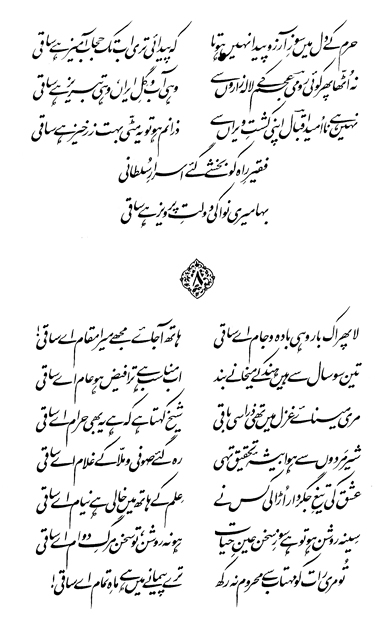 حرم کے دل میں سوزِ آرزو پیدا نہیں ہوتا کہ پیدائی تری اب تک حجاب آمیز ہے ساقی
نہ اٹھا پھر کوئی رومی عجم کے لالہ زاروں سے وہی آب و گلِ ایراں، وہی تبریز ہے ساقی
نہیں ہے ناامید اقبالؔ اپنی کشتِ ویراں سے ذرا نم ہو تو یہ مٹی بہت زرخیز ہے ساقی
فقیرِ راہ کو بخشے گئے اسرارِ سلطانی
بہا میری نوا کی دولتِ پرویز ہے ساقی
۸
لا پھر اک بار وہی بادہ و جام اے ساقی ہاتھ آ جائے مجھے میرا مقام اے ساقی!
تین سو سال سے ہیں ہند کے میخانے بند اب مناسب ہے ترا فیض ہو عام اے ساقی
مری مینائے غزل میں تھی ذرا سی باقی شیخ کہتا ہے کہ ہے یہ بھی حرام اے ساقی
شیر مردوں سے ہوا بیشۂ تحقیق تہی رہ گئے صوفی و ملا کے غلام اے ساقی
عشق کی تیغِ جگردار اڑا لی کس نے علم کے ہاتھ میں خالی ہے نیام اے ساقی
سینہ روشن ہو تو ہے سوزِ سخن عینِ حیات ہو نہ روشن تو سخن مرگِ دوام اے ساقی
تو مری رات کو مہتاب سے محروم نہ رکھ ترے پیمانے میں ہے ماہِ تمام اے ساقی!